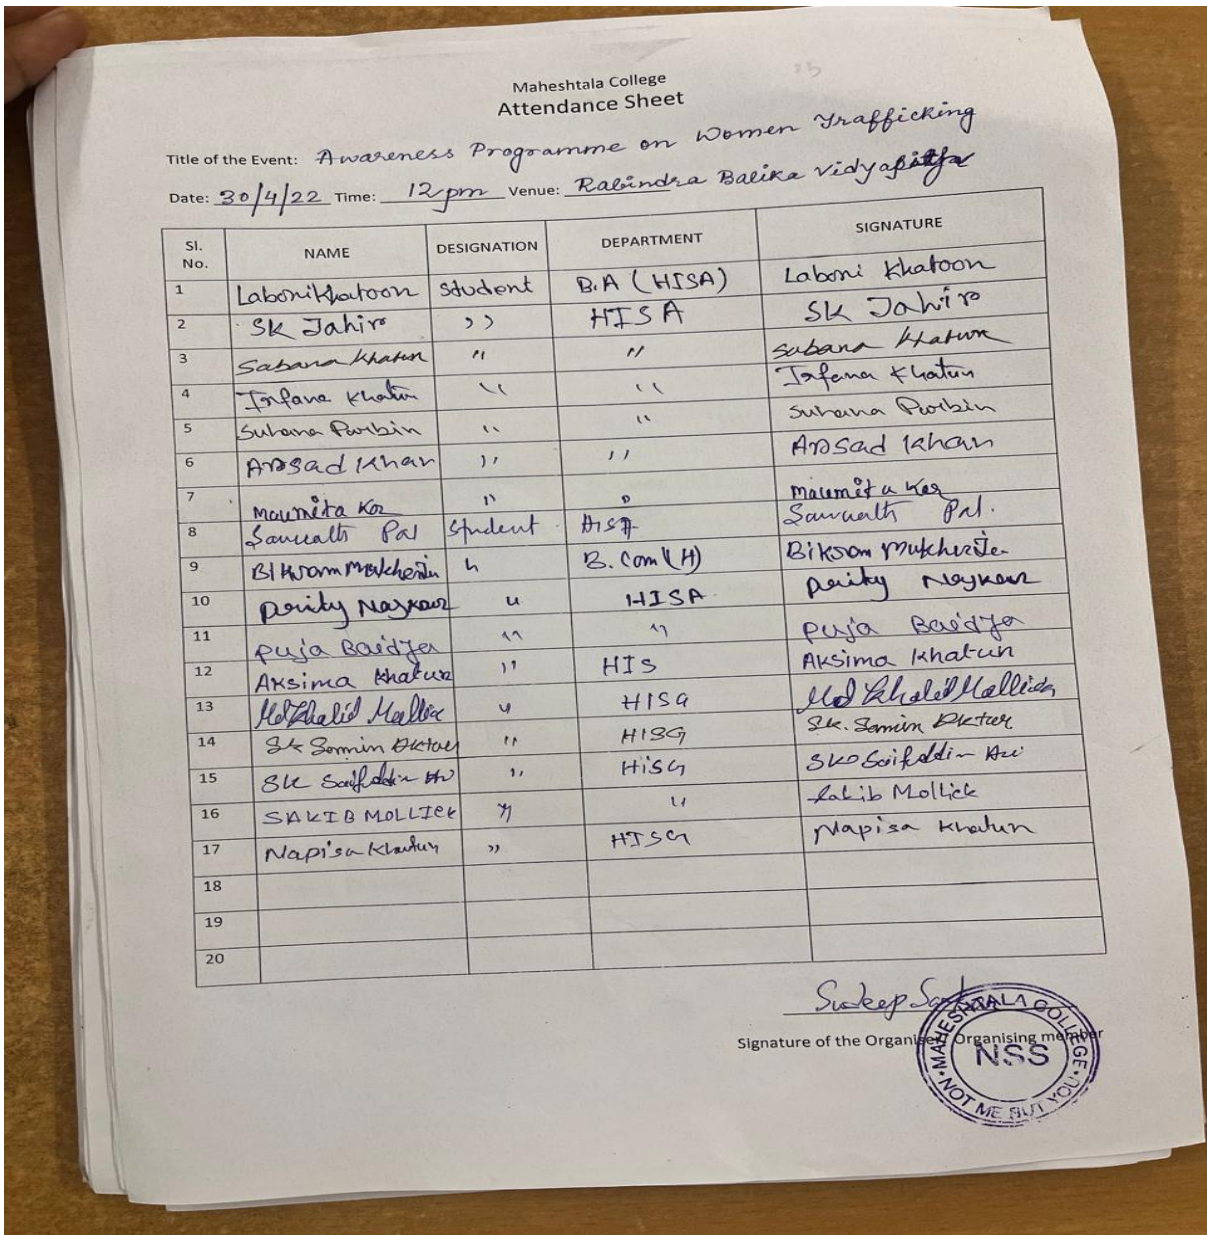 23
Maheshtala College
Attendance Sheet
Title of the Event: Awareness Programme on Women Trafficking
Date: 30/4/22 Time: 12 pm Venue: Rabindra Balika Vidyapitha
Sl. No. NAME DESIGNATION DEPARTMENT SIGNATURE
1 Laboni Khatoon Student B.A (HISA) Laboni Khatoon
2 SK Jahir ,, HISA SK Jahir
3 Sabana Khatun " " Sabana Khatun
4 Irfana Khatun " " Irfana Khatun
5 Suhana Parbin " " Suhana Parbin
6 Arsad Khan " " Arsad Khan
7 Moumita Kor " " Moumita Kor
8 Pal Student HISA Pal.
9 Bikram Mukherjee " B.Com (H) Bikram Mukherjee
10 Priity Naskar " HISA Priity Naskar
11 Puja Baidya " " Puja Baidya
12 Aksima Khatun " HIS Aksima Khatun
13 Md Khalid Mallick " HISG Md Khalid Mallick
14 Sk Samim Aktar " HISG Sk. Samim Aktar
15 SK Saifuddin " HISG SK Saifuddin
16 SAKIB MOLLICK " " Sakib Mollick
17 Napisa Khatun " HISG Napisa Khatun
18
19
20
Sudeep
Signature of the Organiser/Organising member
MAHESHTALA COLLEGE
NSS
NOT ME BUT YOU